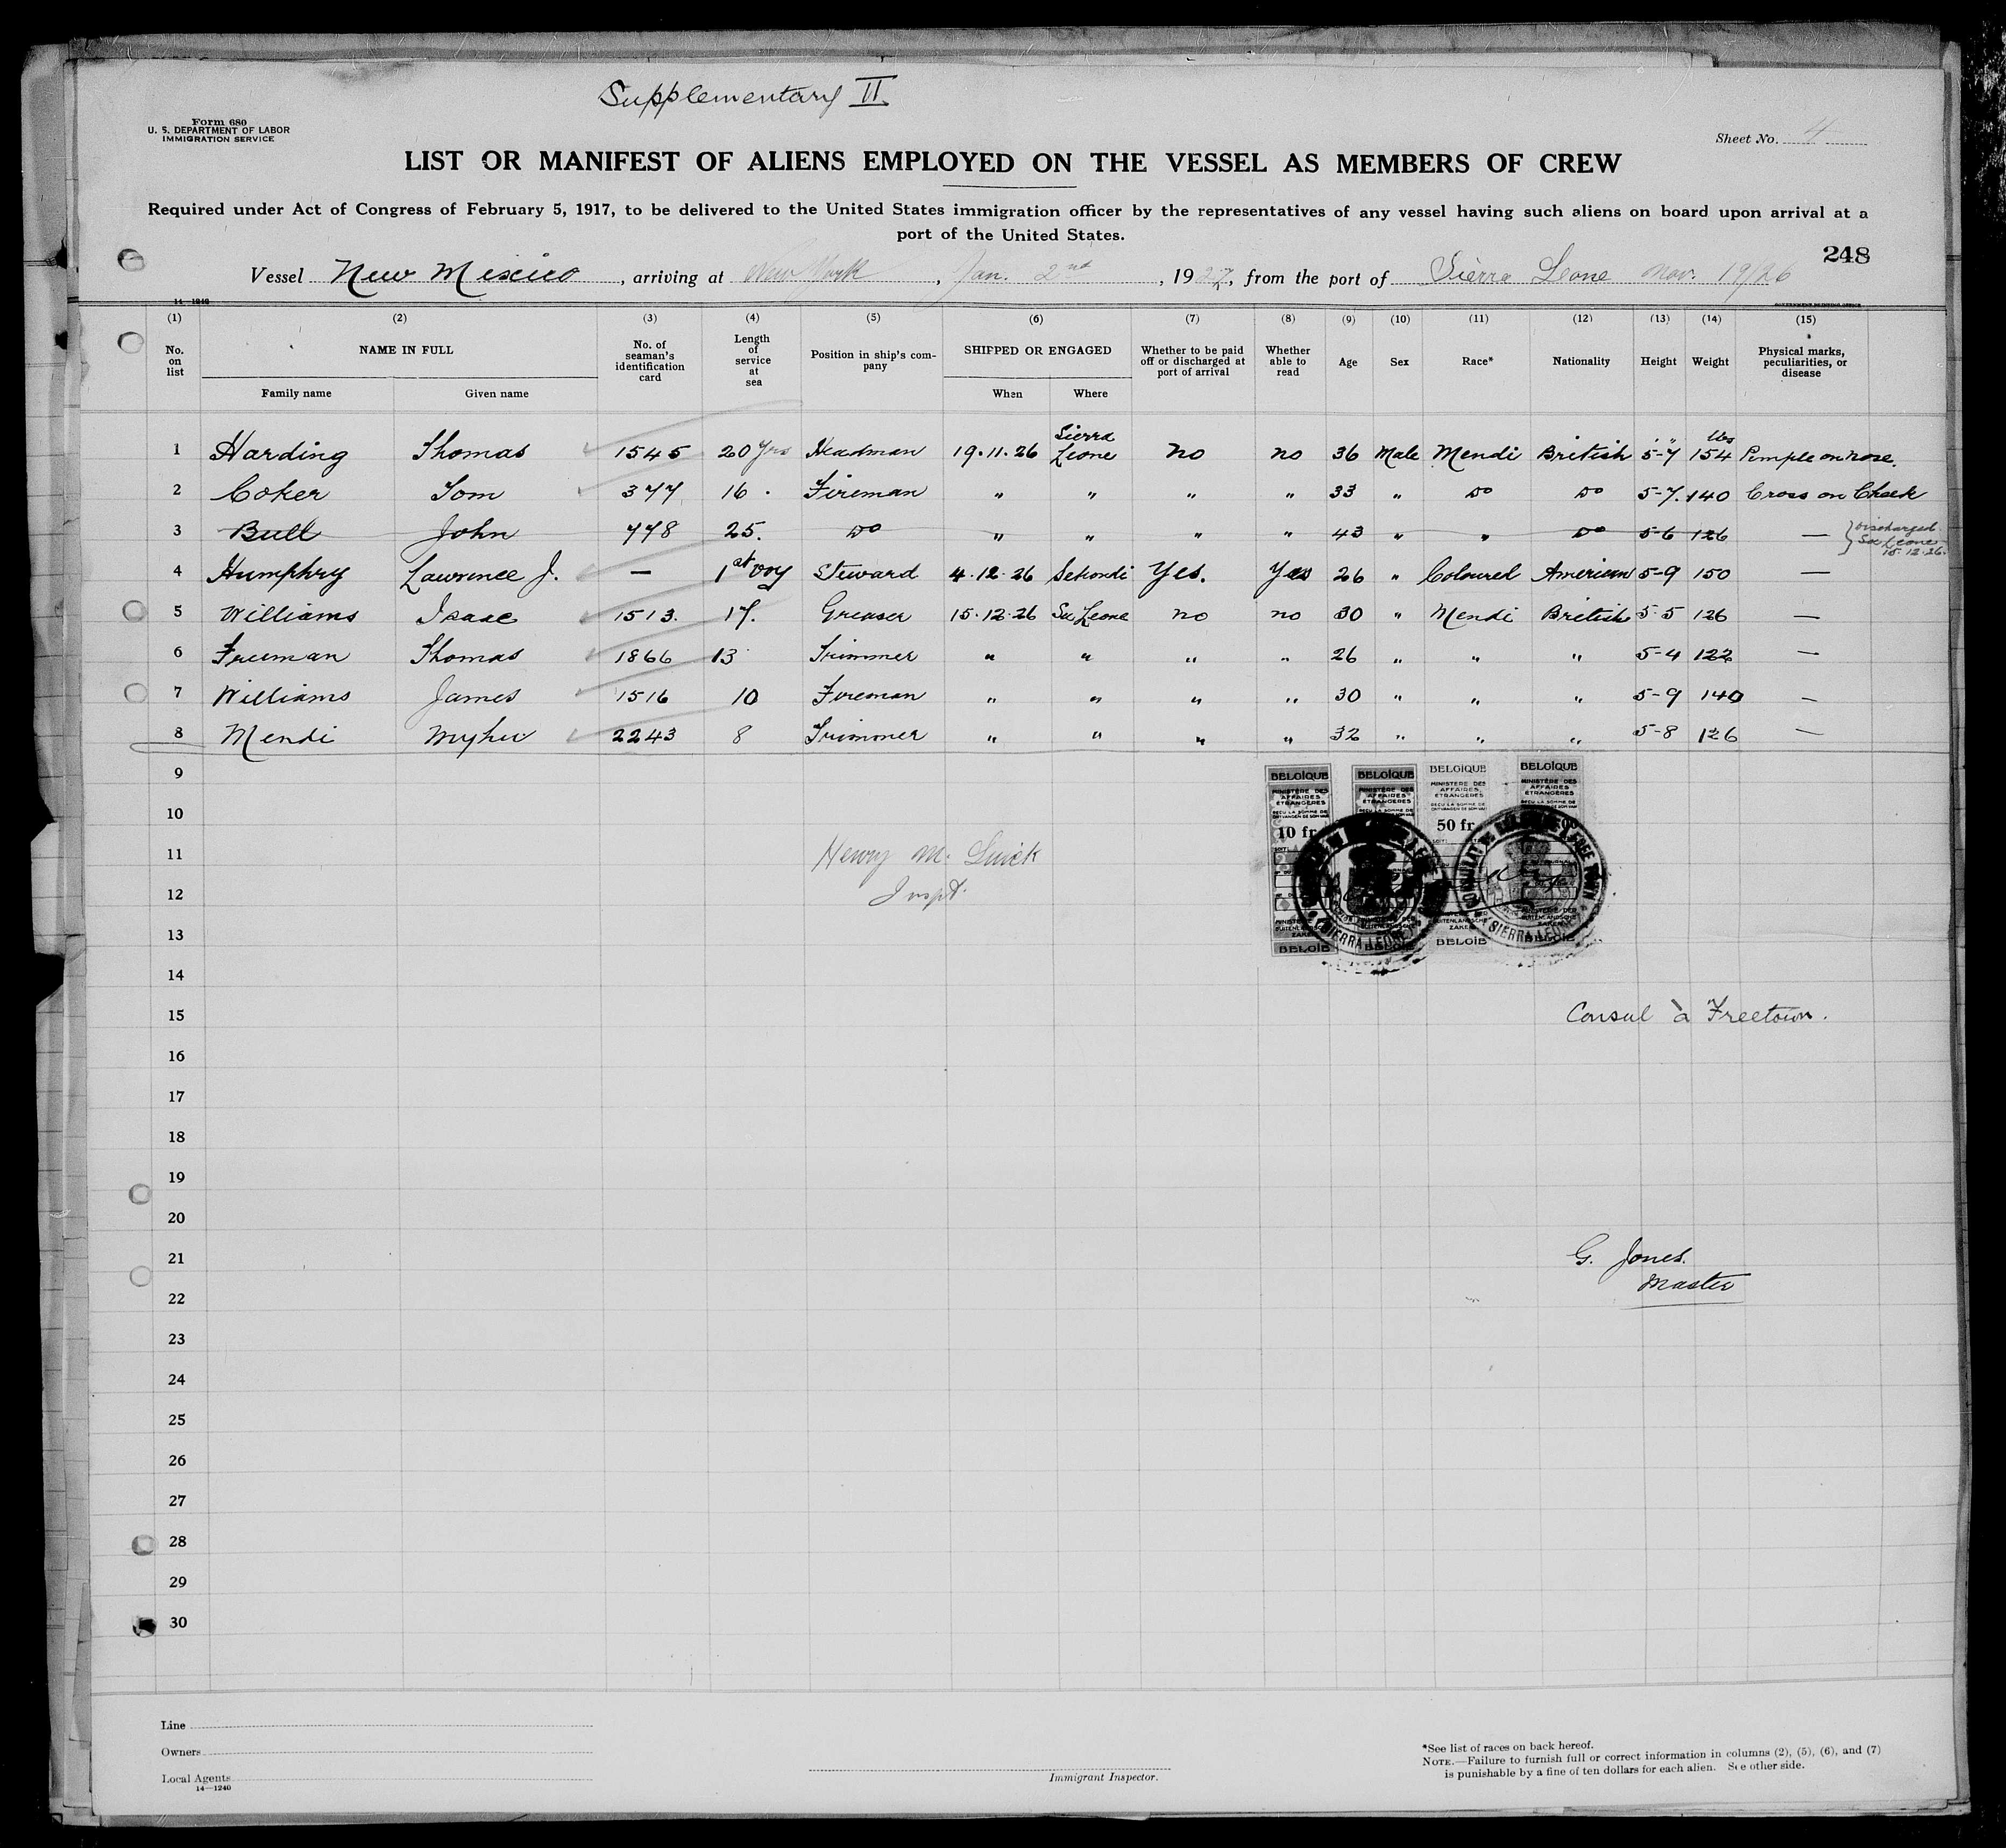 Supplementary II.
Form 680
U. S. DEPARTMENT OF LABOR
IMMIGRATION SERVICE
Sheet No. 4
LIST OR MANIFEST OF ALIENS EMPLOYED ON THE VESSEL AS MEMBERS OF CREW
Required under Act of Congress of February 5, 1917, to be delivered to the United States immigration officer by the representatives of any vessel having such aliens on board upon arrival at a
port of the United States.
248
Vessel New Mexico, arriving at New York, Jan. 2nd, 1927, from the port of Sierra Leone Nov. 19/26
14—1240
GOVERNMENT PRINTING OFFICE
(1) (2) (3) (4) (5) (6) (7) (8) (9) (10) (11) (12) (13) (14) (15)
No. on list NAME IN FULL Family name Given name No. of seaman's identification card Length of service at sea Position in ship's company SHIPPED OR ENGAGED When Where Whether to be paid off or discharged at port of arrival Whether able to read Age Sex Race* Nationality Height Weight Physical marks, peculiarities, or disease
1 Harding Thomas 1545 20 yrs Headman 19.11.26 Sierra Leone No no 36 Male Mendi British 5-7 154 lbs Pimple on nose.
2 Coker Tom 377 16 . Fireman " " " " 33 " Do Do 5-7. 140 Cross on Cheek
3 Bull John 778 25. Do " " " " 43 " " Do 5-6 126 — } Discharged Sa Leone 15.12.26.
4 Humphry Lawrence J. — 1st voy Steward 4.12.26 Sekondi Yes. Yes 26 " Coloured American 5-9 150 —
5 Williams Isaac 1513. 17. Greaser 15.12.26 Sa Leone no no 30 " Mendi British 5-5 126 —
6 Freeman Thomas 1866 13 Trimmer " " " " 26 " " " 5-4 122 —
7 Williams James 1516 10 Fireman " " " " 30 " " " 5-9 140 —
8 Mendi 2243 8 Trimmer " " " " 32 " " " 5-8 126 —
9
10
11
12
13
14
15
16
17
18
19
20
21
22
23
24
25
26
27
28
29
30
BELGIQUE BELGIQUE BELGIQUE BELGIQUE
MINISTÈRE DES AFFAIRES ÉTRANGÈRES
10 fr 50 fr
SIERRA LEONE SIERRA LEONE
BELGIË BELGIË BELGIË BELGIË
Henry M.
Inspt.
Consul à Freetown.
G. Jones.
Master
Line
Owners
Local Agents
14—1240
Immigrant Inspector.
*See list of races on back hereof.
NOTE.—Failure to furnish full or correct information in columns (2), (5), (6), and (7)
is punishable by a fine of ten dollars for each alien. See other side.